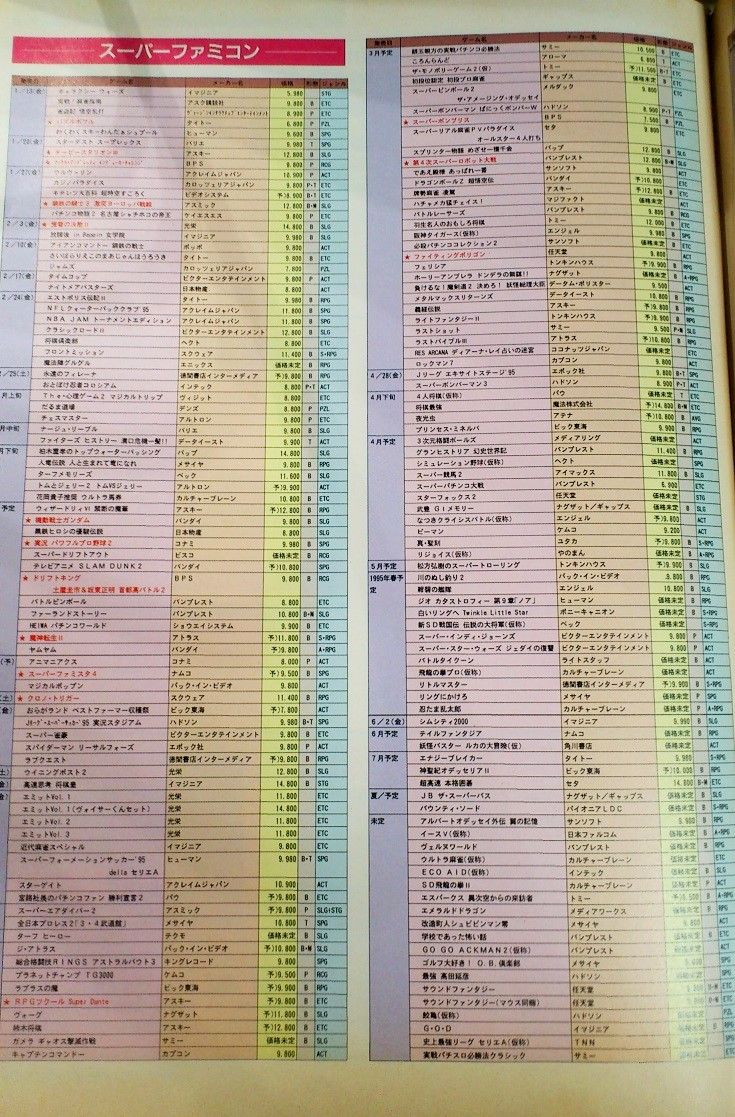 スーパーファミコン
発売日 ゲーム名 メーカー名 価格 形態 ジャンル
イマジニア 5.980 STG
実戦!麻雀指南 アスク講談社 9.800 B ETC
わくわくスキーわんだぁシュプール ヒューマン 9.600 B SPG
スターダスト スープレックス バリエ 9.980 T SPG
アスキー 12.800 B SLG
BPS 9.800 P RCG
ウルヴァリン アクレイムジャパン 10.900 P ACT
カジノパラダイス カロッツェリアジャパン 9.800 P・T ETC
キテレツ大百科 超時空すごろく ビデオシステム 予)8.900 B・T ETC
★ 鋼鉄の騎士2 砂漠のロンメル軍団 アスミック 12.800 B・M SLG
パチンコ物語2 名古屋シャチホコの帝王 ケイエスエス 9.800 P ETC
2/3(金) 光栄 14.800 B SLG
放課後 in Beppin 女学院 イマジニア 9.980 B SLG
2/10(金) アイアンコマンドー 鋼鉄の戦士 ポッポ 9.800 ACT
さいばらりえこのまあじゃんほうろうき タイトー 9.800 B ETC
ジャムズ カロッツェリアジャパン 7.800 PZL
2/17(金) タイムコップ ビクターエンタテインメント 9.800 P ACT
ナイトメアバスターズ 日本物産 8.800 ACT
2/24(金) エストポリス伝記Ⅱ タイトー 9.980 B RPG
NFLクォーターバッククラブ'95 アクレイムジャパン 11.800 B SPG
NBA JAM トーナメントエディション アクレイムジャパン 11.800 B SPG
クラシックロードⅡ ビクターエンタテインメント 12.800 B SLG
将棋倶楽部 ヘクト 8.800 ETC
フロントミッション スクウェア 11.400 B S・RPG
魔法陣グルグル エニックス 価格未定 B RPG
2/25(土) 永遠のフィレーナ 徳間書店インターメディア 予)9.800 B RPG
おとぼけ忍者コロシアム インテック 8.800 P・T ACT
月上旬 The・心理ゲーム2 マジカルトリップ ヴィジット 8.800 ETC
だるま道場 デンズ 8.800 P PZL
チェスマスター アルトロン 9.800 P ETC
月中旬 ナージュ・リーブル バリエ 9.800 B SLG
ファイターズ ヒストリー 溝口危機一髪!! データイースト 9.900 T ACT
月下旬 柏木重孝のトップウォーターバッシング バップ 14.800 SLG
人竜伝説 人と生まれて竜になれ メサイヤ 9.800 B RPG
ターフメモリーズ ベック 11.600 B SLG
トムとジェリー2 トムVSジェリー アルトロン 予)9.900 ACT
花岡貴子推奨 ウルトラ馬券 カルチャーブレーン 10.800 B ETC
予定 ウィザードリィⅥ 禁断の魔筆 アスキー 予)12.800 B RPG
★ 機動戦士ガンダム バンダイ 9.800 B SLG
黒鉄ヒロシの優駿伝説 日本物産 8.800 SLG
★ 実況 パワフルプロ野球2 コナミ 9.980 B SPG
スーパードリフトアウト ビスコ 価格未定 B RCG
テレビアニメ SLAM DUNK2 バンダイ 予)10.800 SPG
★ ドリフトキング BPS 9.800 B RCG
土屋圭市&坂東正明 首都高バトル2
バトルピンボール バンプレスト 8.800 ETC
ファーランドストーリー バンプレスト 10.800 B・M SLG
HEIWA パチンコワールド ショウエイシステム 9.900 B ETC
★ 魔神転生Ⅱ アトラス 予)11.800 B S・RPG
ヤムヤム バンダイ 予)9.800 A・RPG
(予) アニマニアクス コナミ 8.000 P ACT
★ スーパーファミスタ4 ナムコ 予)9.500 B SPG
マジカルポップン パック・イン・ビデオ 9.800 ACT
(土) ★ クロノ・トリガー スクウェア 11.400 B RPG
(金) おらがランド ベストファーマー収穫祭 ビック東海 予)7.800 ACT
Jリーグ・スーパーサッカー'95 実況スタジアム ハドソン 9.980 B・T SPG
スーパー雀豪 ビクターエンタテインメント 9.800 B ETC
スパイダーマン リーサルフォーズ エポック社 9.800 P ACT
ラプクエスト 徳間書店インターメディア 予)9.800 B RPG
土) ウイニングポスト2 光栄 12.800 B SLG
金) 高速思考 将棋皇 イマジニア 14.800 B STG
エミットVol. 1 光栄 11.800 ETC
エミットVol. 1(ヴォイサーくんセット) 光栄 14.800 ETC
エミットVol. 2 光栄 11.800 ETC
エミットVol. 3 光栄 11.800 ETC
近代麻雀スペシャル イマジニア 9.800 B ETC
スーパーフォーメーションサッカー'95 ヒューマン 9.980 B・T SPG
della セリエA
スターゲイト アクレイムジャパン 10.900 ACT
宮路社長のパチンコファン 勝利宣言2 パウ 予)9.800 B ETC
スーパーエアダイバー2 アスミック 予)9.800 P SLG・STG
全日本プロレス2「3・4武道館」 メサイヤ 10.800 T SPG
ターフ ヒーロー テクモ 価格未定 B SLG
ジ・アトラス パック・イン・ビデオ 予)10.800 B・M SLG
総合格闘技RINGS アストラルバウト3 キングレコード 9.800 SPG
プラネットチャンプ TG3000 ケムコ 予)9.500 P RCG
ラプラスの魔 ビック東海 予)9.900 B RPG
★ RPGツクール Super Dante アスキー 予)9.800 B ETC
ヴォーグ ナグザット 予)11.800 B SLG
時木将棋 アスキー 予)12.800 B ETC
ガメラ ギャオス撃滅作戦 サミー 価格未定 B SLG
キャプテンコマンドー カプコン 9.800 ACT
発売日 ゲーム名 メーカー名 価格 形態 ジャンル
3月予定 銀玉親方の実戦パチンコ必勝法 サミー 10.500 B ETC
ころんらんど アローマ 6.800 T ACT
ザ・モノポリーゲーム2(仮) トミー 予)11.500 B・T ETC
初段位認定 初段プロ麻雀 ギャップス 価格未定 B ETC
スーパーピンボール2 メルダック 9.800 ETC
ザ・アメージング・オデッセイ
スーパーボンバーマン ぱにっくボンバーW ハドソン 8.900 P・T PZL
★ スーパーボンブリス BPS 1.500 B PZL
スーパーリアル麻雀PⅤパラダイス セタ 9.800 B ETC
オールスター4人打ち
スプリンター物語 めざせ一攫千金 バップ 12.800 B SLG
★ 第4次スーパーロボット大戦 バンプレスト 予)12.800 B・M SLG
であえ殿様 あっぱれ一番 サンソフト 価格未定 ACT
ドラゴンボールZ 超悟空伝 バンダイ 予)10.800 ETC
牌勢麻雀 凌駕 アスキー 予)12.800 B ETC
ハチャメカ猛チェイス! マジファクト 価格未定 ACT
バトルレーサーズ バンプレスト 9.800 B RCG
羽生名人のおもしろ将棋 トミー 12.000 B ETC
阪神タイガース(仮称) エンジェル 価格未定 B SPG
必殺パチンココレクション2 サンソフト 価格未定 B ETC
★ ファイティングポリゴン 9.800 ACT
フェリシア トンキンハウス 予)9.900 B RPG
ホーリーアンブレラ ドンデラの無謀!! ナグザット 価格未定 A・RPG
負けるな!魔剣道2 決めろ! 妖怪総理大臣 データム・ポリスター 9.500 ACT
メタルマックスリターンズ データイースト 10.800 B RPG
義経伝説 アスキー 予)9.800 B RPG
ライトファンタジーⅡ トンキンハウス 予)9.900 B RPG
ラストショット サミー 9.500 P・M SLG
ラストバイブルⅢ アトラス 予)10.800 B RPG
RES ARCANA ディアーナ・レイ占いの迷宮 ココナッツジャパン 価格未定 ETC
ロックマン7 カプコン 9.800 ACT
4/28(金) Jリーグ エキサイトステージ'95 エポック社 9.800 B・T SPG
スーパーボンバーマン3 ハドソン 8.900 P・T ACT
4月下旬 4人将棋(仮称) パウ 価格未定 T ETC
将棋最強 魔法株式会社 予)14.800 B・M ETC
夜光虫 アテナ 10.800 B AVG
プリンセス・ミネルバ ビック東海 9.900 B RPG
4月予定 3次元格闘ボールズ メディアリング 価格未定 ACT
グランヒストリア 幻史世界記 バンプレスト 11.400 B RPG
シミュレーション野球(仮称) ヘクト 価格未定 SPG
スーパー競馬2 アイマックス 11.800 B SLG
スーパーパチンコ大戦 バンプレスト 6.900 ETC
スターフォックス2 任天堂 価格未定 STG
武豊 GIメモリー ナグザット/ギャップス 価格未定 B SLG
なつきクライシスバトル(仮称) エンジェル 予)9.800 ACT
ケムーン ケムコ 9.200 ACT
真・聖刻 ユタカ 予)9.800 B S・RPG
リジョイス(仮称) やのまん 予)9.800 B A・RPG
5月予定 松方弘樹のスーパートローリング トンキンハウス 予)9.900 B SLG
1995年春予定 川のぬし釣り2 パック・イン・ビデオ 予)9.800 B RPG
蒼碧の艦隊 エンジェル 10.800 B SLG
ジオ カタストロフィー 第9章「ノア」 ヒューマン 価格未定 B RPG
白いリングへ Twinkle Little Star ポニーキャニオン 価格未定 B S・RPG
新SD戦国伝 伝説の大将軍(仮称) ベック 価格未定 B S・RPG
スーパー・インディ・ジョーンズ ビクターエンタテインメント 9.800 P ACT
スーパー・スター・ウォーズ ジェダイの復讐 ビクターエンタテインメント 価格未定 P ACT
バトルタイクーン ライトスタッフ 価格未定 B ACT
飛龍の拳プロ(仮称) カルチャーブレーン 価格未定 ACT
リトルマスター 徳間書店インターメディア 予)9.900 B S・RPG
リングにかけろ メサイヤ 価格未定 P SPG
忍たま乱太郎 カルチャーブレーン 価格未定 P ACT
6/2(金) シムシティ2000 イマジニア 9.990 B SLG
6月予定 テイルファンタジア ナムコ 価格未定 B RPG
妖怪バスター ルカの大冒険(仮) 角川書店 価格未定 ACT
7月予定 エナジーブレイカー タイトー 9.980 S・RPG
神聖紀オデッセリアⅡ ビック東海 予)10.000 B RPG
超高速 本格囲碁 セタ 14.800 B・M ETC
夏/予定 JB ザ・スーパーバス ナグザット/ギャップス 価格未定 B SLG
バウンティ・ソード パイオニアLDC 価格未定 B S・RPG
未定 アルバートオデッセイ外伝 翼の記憶 サンソフト 9.900 B RPG
イースⅤ(仮称) 日本ファルコム 価格未定 B A・RPG
ヴェルヌワールド バンプレスト 価格未定 B RPG
ウルトラ麻雀(仮称) カルチャーブレーン 価格未定 ETC
ECO AID(仮称) インテック 価格未定 B SLG
SD飛龍の拳Ⅱ カルチャーブレーン 価格未定 P ACT
エスパークス 異次空からの来訪者 トミー 予)9.500 B A・RPG
エメラルドドラゴン メディアワークス 価格未定 B RPG
改造町人シュビビンマン零 メサイヤ 8.800 ACT
学校であった怖い話 バンプレスト 価格未定 B ETC
GO GO ACKMAN2(仮称) バンプレスト 価格未定 ACT
ゴルフ大好き! O.B.倶楽部 メサイヤ SPG
最強 高田延彦 ハドソン 価格未定 SPG
サウンドファンタジー 任天堂 価格未定 B・M ETC
サウンドファンタジー(マウス同梱) 任天堂 ETC
鮫亀(仮称) ハドソン 価格未定 PZL
G・O・D イマジニア 価格未定 B RPG
史上最強リーグ セリエA(仮称) TNN 価格未定 SPG
実戦パチスロ必勝法クラシック サミー 価格未定 ETC